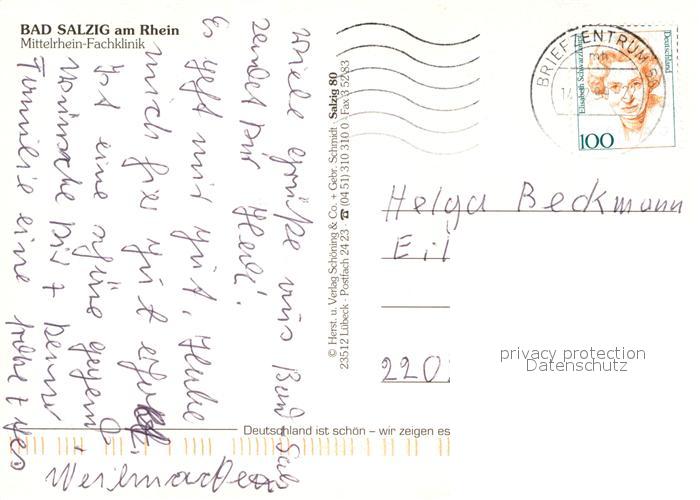 BAD SALZIG am Rhein
Mittelrhein-Fachklinik
Viele Grüße aus Bad Salz
sendet Dir Heidi.
Es geht mir gut. Habe
mich hier gut erholt.
Ist eine schöne Gegend.
Wünsche Dir + Deiner
Familie eine frohe + ges
Weihnachten
© Herst. u. Verlag Schöning & Co. + Gebr. Schmidt · Salzig 80
23512 Lübeck · Postfach 24 23 · ☎ (04 51) 310 310 0 · Fax 3 52 83
Deutschland ist schön – wir zeigen es
BRIEFZENTRUM 56
Elisabeth Schwarzhaupt
Deutschland
100
Helga Beckmann
Eil
220
privacy protection
Datenschutz